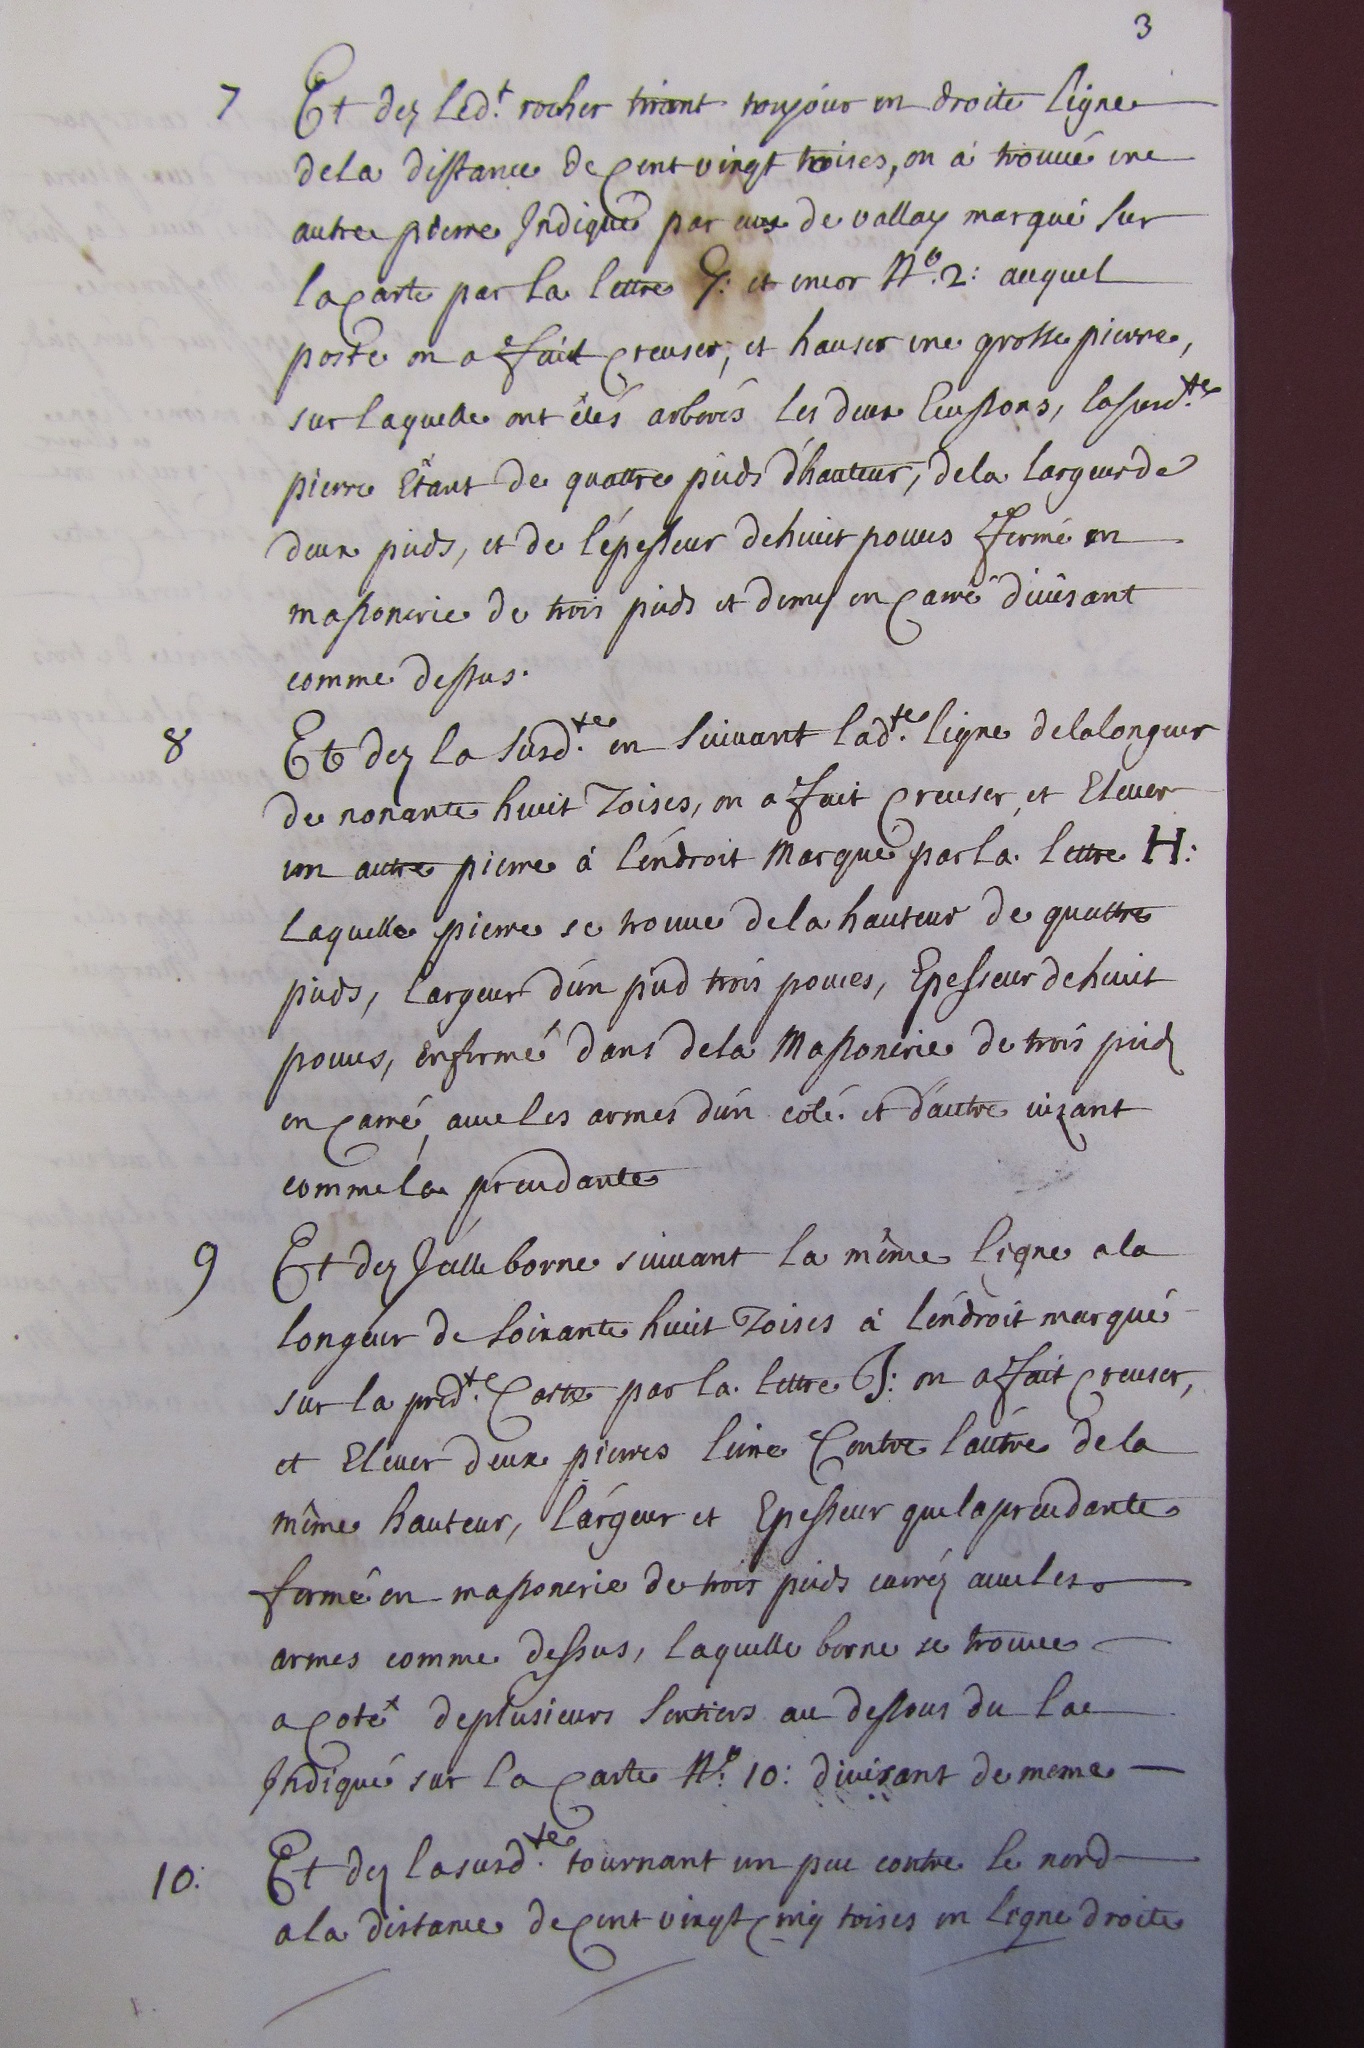 3
7 Et dez Led.t rocher tirant toujour en droite ligne
de la distance de Cent vingt troises, on a trouvé une
autre pierre Indiqué par eux de vallay marqué sur
la Carte par la lettre G: et encor N.o 2: auquel
poste on a fait Creuser, et hauser une grosse pierre,
sur laquelle ont étés arborés les deux Ecussons, la susd.te
pierre Etant de quattre pieds d'hauteur, de la largeur de
deux pieds, et de l'épesseur de huit pouces fermé en
massonerie de trois pieds et demy en Carré divisant
comme dessus.
8 Et dez la susd.te en suivant lad.te ligne de la longeur
de nonante huit Toises, on a fait Creuser et Elever
un autre pierre à l'éndroit Marqué par la lettre H:
Laquelle pierre se trouve de la hauteur de quattre
pieds, largeur d'ún pied trois pouces, Epesseur de huit
pouces, enfermé dans de la Massonerie de trois pieds
en Carré, avec les armes d'ún coté et d'autre vizant
comme la precedante
9 Et dez Jcelle borne suivant la même ligne a la
longeur de soixante huit Toises à l'éndroit marqué
sur la pred.te Carte par la lettre J: on a fait Creuser,
et Elever deux pierres l'une Contre l'aútre de la
même hauteur, lárgeur et Epesseur que la precedante
fermé en massonerie de trois pieds carréz avec les
armes comme dessus, laquelle borne se trouve
a Coté de plusieurs sentiers au dessous du lac
Indiqué sur la Carte N.o 10: divisant de meme
10: Et dez la susd.te tournant un peu contre le nord
a la distance de Cent vingt Cinq toises en ligne droite